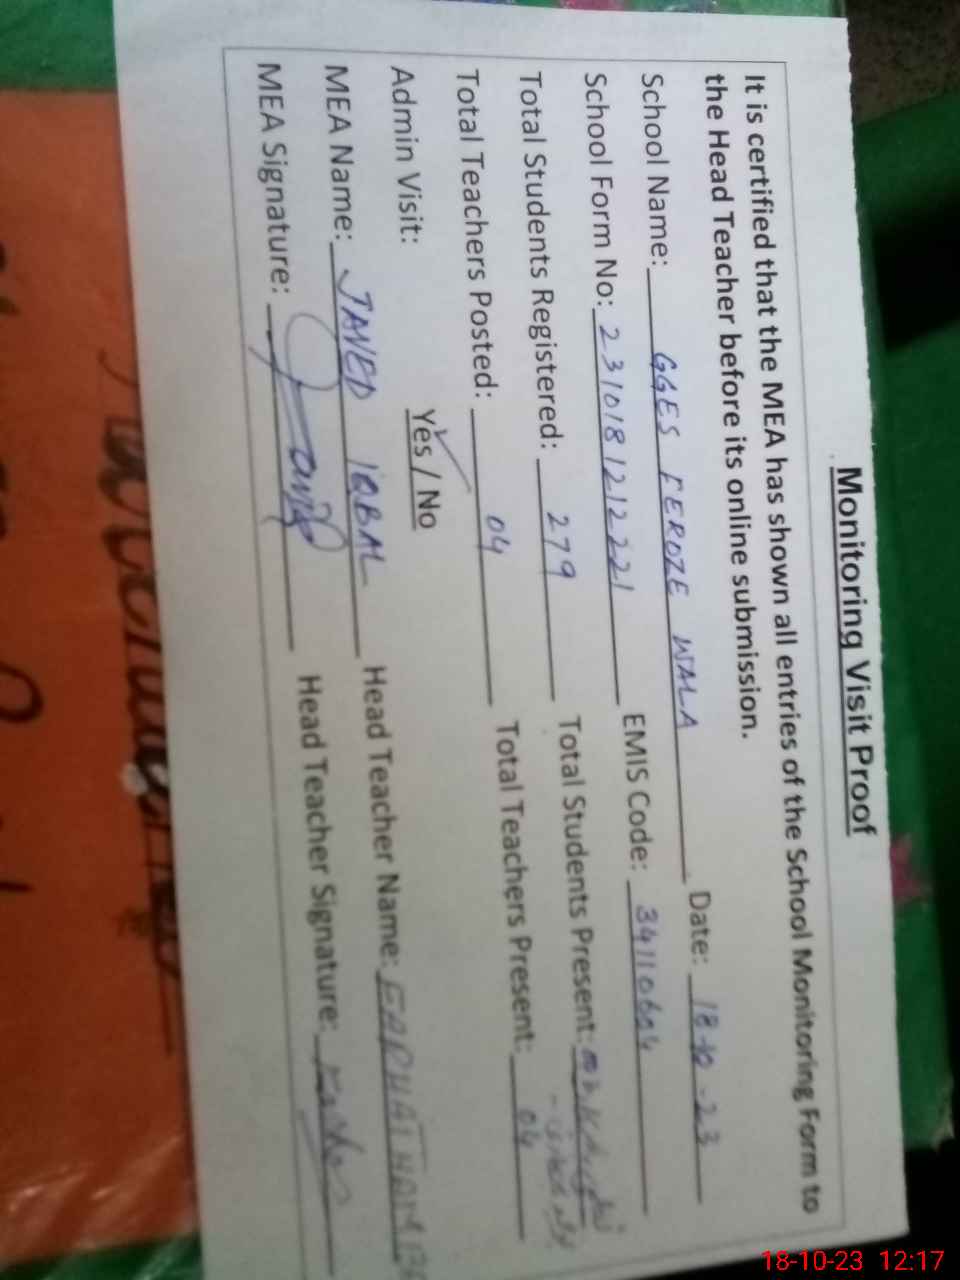 Monitoring Visit Proof
It is certified that the MEA has shown all entries of the School Monitoring Form to
the Head Teacher before its online submission.
School Name: GGES FEROZE WALA Date: 18-10-23
School Form No: 2310181212221 EMIS Code: 34110604
Total Students Registered: 279 Total Students Present:
Total Teachers Posted: 04 Total Teachers Present: 04
Admin Visit: Yes / No
MEA Name: JAVED IQBAL Head Teacher Name:
MEA Signature: Javid Head Teacher Signature:
18-10-23 12:17